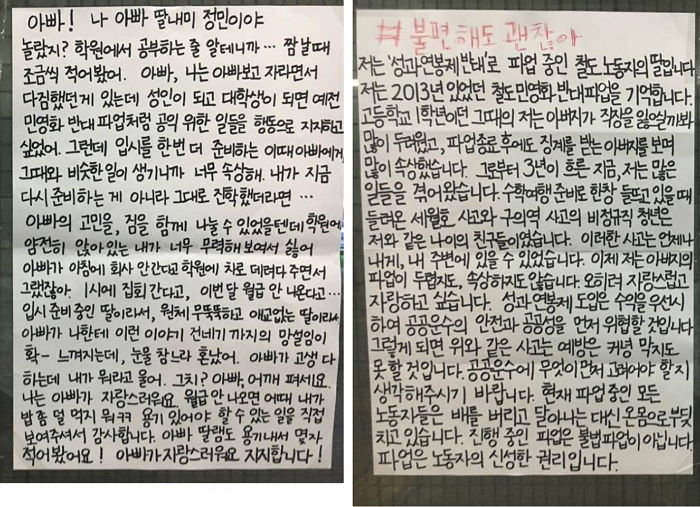 아빠! 나 아빠 딸내미 정민이야
놀랐지? 학원에서 공부하는 줄 알테니까… 짬날때
조금씩 적어봤어. 아빠, 나는 아빠보고 자라면서
다짐했던게 있는데 성인이 되고 대학생이 되면 예전
민영화 반대 파업처럼 공의 위한 일들을 행동으로 지지하고
싶었어. 그런데 입시를 한번 더 준비하는 이때 아빠에게
그때와 비슷한 일이 생기니까 너무 속상해. 내가 지금
다시 준비하는 게 아니라 그대로 진학했더라면…
아빠의 고민을, 짐을 함께 나눌 수 있었을텐데 학원에
얌전히 앉아있는 내가 너무 무력해보여서 싫어
아빠가 아침에 회사 안간다고 학원에 차로 데려다 주면서
그랬잖아. 1시에 집회 간다고, 이번달 월급 안 나온다고…
입시 준비중인 딸이라서, 원체 무뚝뚝하고 애교없는 딸이라서
아빠가 나한테 이런 이야기 건네기 까지의 망설임이
확- 느껴지는데, 눈물 참느라 혼났어. 아빠가 고생 다
하는데 내가 뭐라고 울어. 그치? 아빠, 어깨 펴세요.
나는 아빠가 자랑스러워요. 월급 안 나오면 어때 내가
밥 좀 덜 먹지 뭐ㅋㅋ 용기 있어야 할 수 있는 일을 직접
보여주셔서 감사합니다. 아빠 딸램도 용기내서 몇자
적어봤어요! 아빠가 자랑스러워요 지지합니다!
#불편해도 괜찮아
저는 '성과연봉제 반대'로 파업 중인 철도 노동자의 딸입니다.
저는 2013년 있었던 철도민영화 반대파업을 기억합니다.
고등학교 1학년이던 그때의 저는 아버지가 직장을 잃었을까봐
많이 두려웠고, 파업종료 후에도 징계를 받는 아버지를 보며
많이 속상했습니다. 그로부터 3년이 흐른 지금, 저는 많은
일들을 겪어왔습니다. 수학여행 준비로 한창 들뜨고 있을 때
들려온 세월호 사고와 구의역 사고의 비정규직 청년은
저와 같은 나이의 친구들이었습니다. 이러한 사고는 언제나
내게, 내 주변에 있을 수 있었습니다. 이제 저는 아버지의
파업이 두렵지도, 속상하지도 않습니다. 오히려 자랑스럽고
자랑하고 싶습니다. 성과연봉제 도입은 수익을 우선시
하여 공공운수의 안전과 공공성을 먼저 위협할 것입니다.
그렇게 되면 위와 같은 사고는 예방은 커녕 막지도
못 할 것입니다. 공공운수에 무엇이 먼저 고려야 할지
생각해주시기 바랍니다. 현재 파업 중인 모든
노동자들은 배를 버리고 달아나는 대신 온몸으로 부딪
치고 있습니다. 진행 중인 파업은 불법파업이 아닙니다.
파업은 노동자의 신성한 권리입니다.